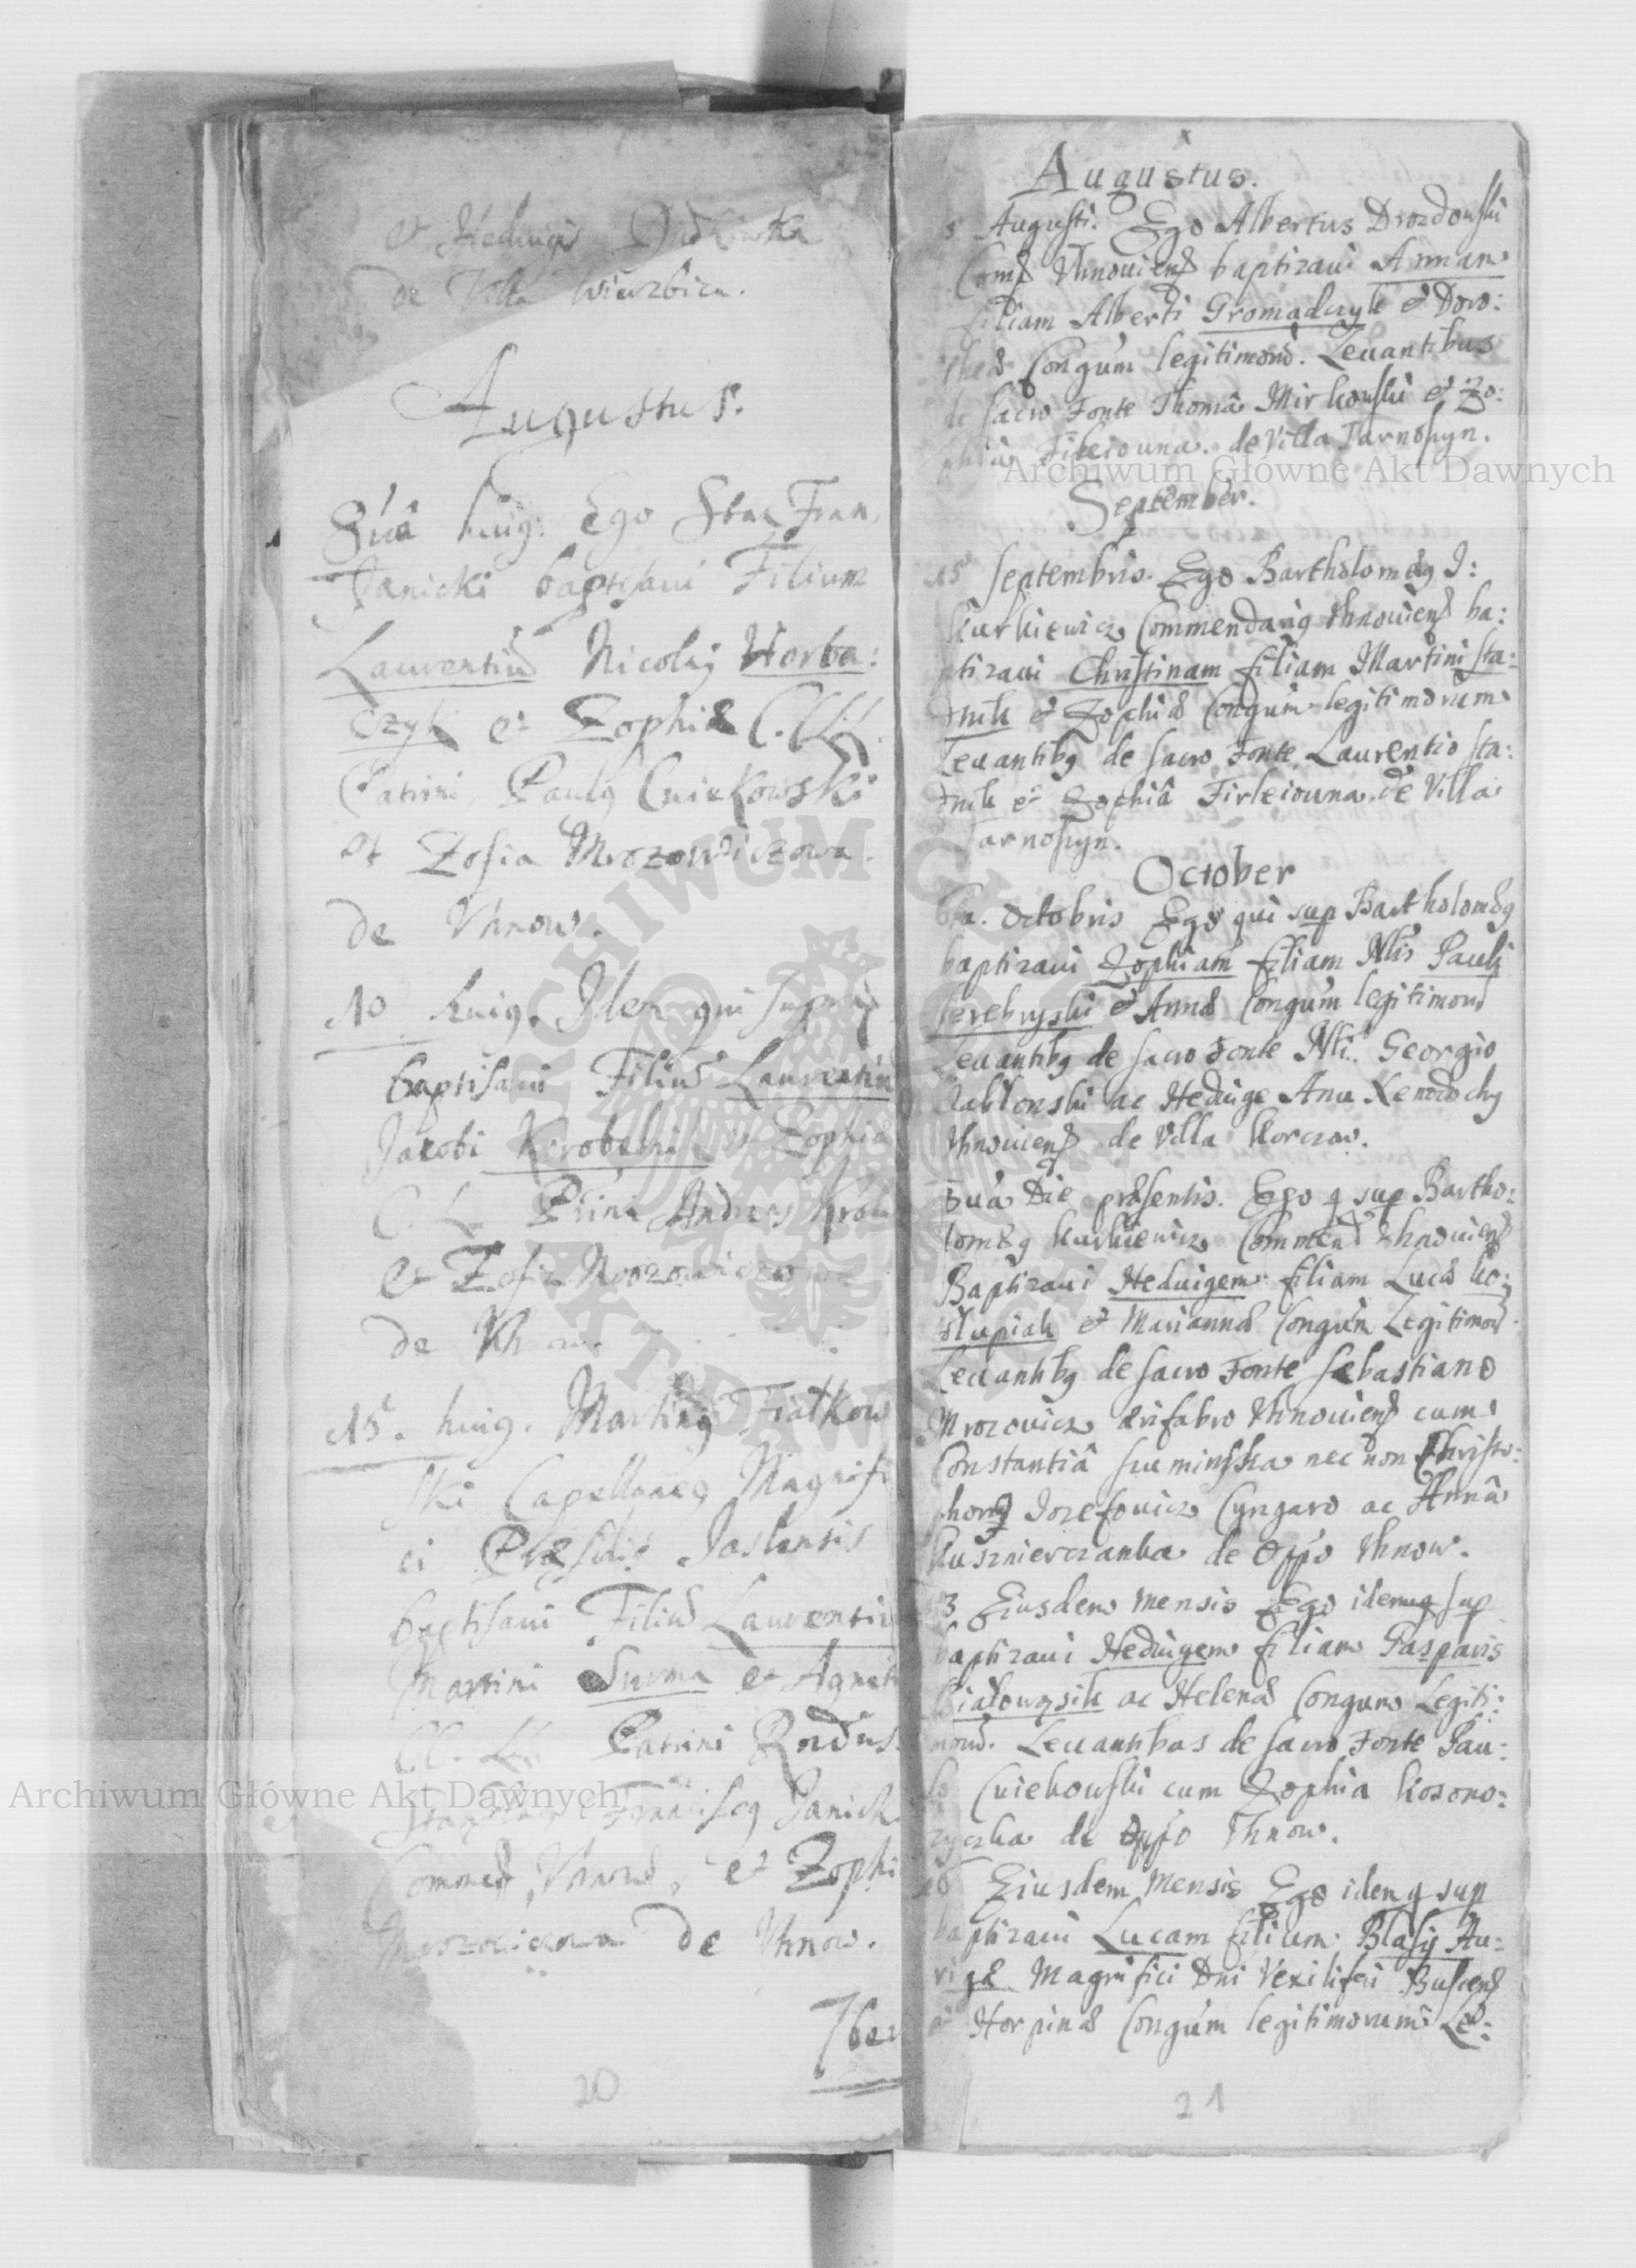 et Hedwigis Dudkowska
de Villa Wierzbica.
Augustus.
8va huig. Ego Stan Fran.
Janicki baptisaui Filium
Laurentiū Nicolaj Horba:
czyk et Zophiæ C. LL.
Patrini Paulg Cwiekowski
et Zofia Mrozowiczowa.
de Vhnow.
10 huig. Idem qui supra
baptisaui Filiū Laurentiū
Jacobi et Zophiæ
C. L. Andreas
et Zofia Mrozowiczowa
de Vhnow.
15. huig. Marting Fiałkow
ski Capellaneg Magnifi
ci Jaslensis
baptisaui Filiū Laurentiū
Martini Surma et Agnet
CC. LL. Patrini Rndus.
Franciscg Janick
Commēd Vhnow, et Zophi
Mrozowiczowa de Vhnow.
7ber
20
Augustus.
5 Augusti. Ego Albertus Drozdowski
Comd Vhnouiens baptizaui Annam
filiam Alberti Gromadczyk et Doro:
theæ Congum legitimorū. Leuantibus
de sacro Fonte Thomâ Mirkowski et Zo:
phiâ Firleiouna. de Villa Tarnoszyn.
September.
15 septembris. Ego Bartholomęg I:
Kurkiewicz Commendarig Vhnouiens ba:
ptizaui Christinam filiam Martini sta:
dnik et Zophiæ Congum legitimorum
Leuantibg de sacro Fonte Laurentio sta:
dnik et Zophiâ Firleiouna de Villa
Tarnoszyn.
October
6ta. Octobris Ego qui sup Bartholomęg
baptizaui Zophiam filiam Nlis Pauli
Serebryski et Annæ Congum legitimorū
Leuantibg de sacro Fonte Nli. Georgio
Jablonski ac Heduige Anu Xenodochy
Vhnouiens de Villa Korczow.
Die præsentis. Ego q sup Bartho:
lomęg Kurkiewicz Commend Vhnouiens
Baptizaui Heduigem filiam Lucæ Ko:
słupiak et Mariannæ Congum Legitimorū
Leuantibg de sacro Fonte Sebastiano
Mrozouicz Vhnouiens cum
Constantiâ necnon Christo:
phorg Jozefouicz Cyngaro ac Annâ
Kusznierczanka de Oppo Vhnow.
13 Eiusdem mensis Ego idem q sup
baptizaui Heduigem filiam Gasparis
ac Helenæ Congum Legiti:
morū. Leuantibus de sacro Fonte Pau:
lo Cwiekowski cum Zophia Kosono:
zyczka de Oppo Vhnow.
16 Eiusdem Mensis Ego idem q sup
baptizaui Lucam filium Blasij Au:
rigæ Magnifici Dni Vexiliferi Buscens
et Horpinæ Congum legitimorum Le:
21
Archiwum Główne Akt Dawnych
Archiwum Główne Akt Dawnych
ARCHIWUM GŁÓWNE
AKT DAWNYCH